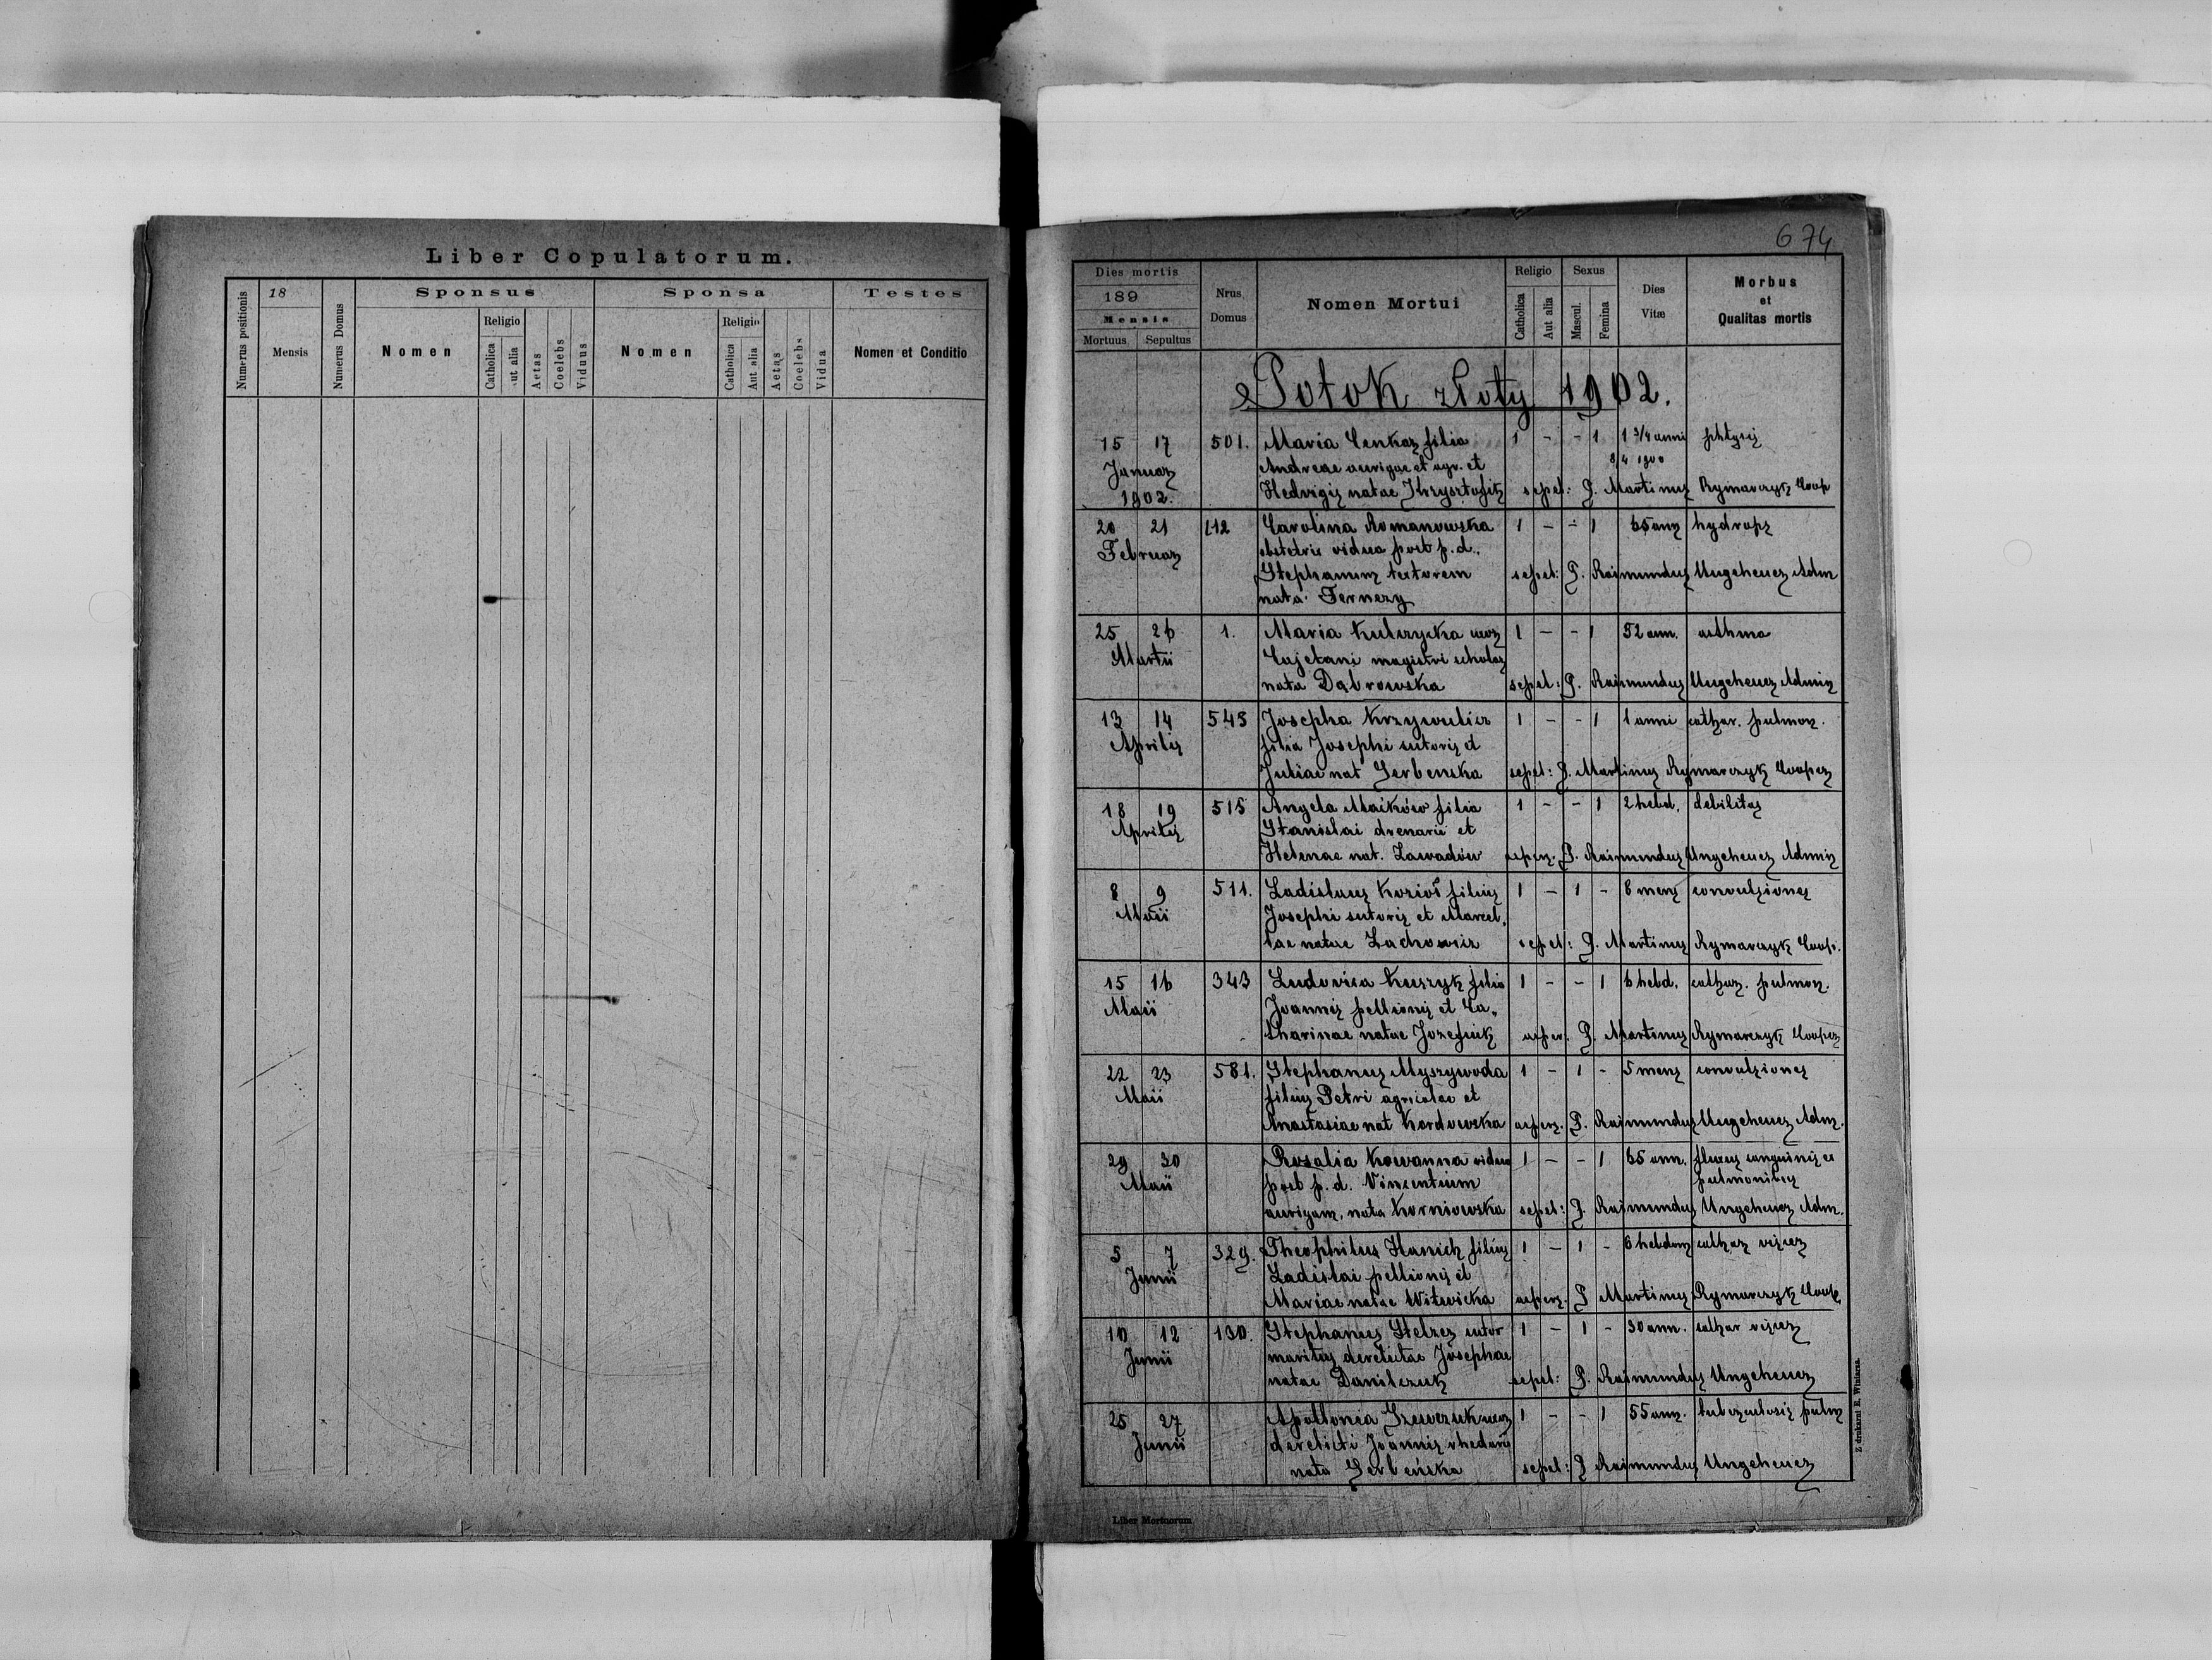 Liber Copulatorum.
Numerus positionis
18
Mensis
Numerus Domus
Sponsus
Nomen
Religio
Catholica
ut alia
Aetas
Coelebs
Viduus
Sponsa
Nomen
Religio
Catholica
Aut alia
Aetas
Coelebs
Vidua
Testes
Nomen et Conditio
674
Dies mortis
189
Mensis
Mortuus Sepultus
Nrus
Domus
Nomen Mortui
Religio
Catholica
Aut alia
Sexus
Mascul.
Femina
Dies
Vitæ
Morbus
et
Qualitas mortis
Potok złoty 1902.
15 17 501. Maria Cenkar filia 1 - - 1 1 3/4 anni phtysis
Januar Andreae aurigae et agr. et 8/4 1900
1902. Hedvigis natae Krzysztofik sepel: P. Martinus Rymarczyk Coop
20 21 112 Carolina Romanowska 1 - - 1 65 ann hydrops
Februar obstetrix vidua post p. d.
Stephanum textorem sepel: P. Raimundus Ungeheuer Adm
nata
25 26 1. Maria Kulczycka uxor 1 - - 1 52 ann. asthma
Martii Cajetani magistri scholae
nata Dąbrowska sepel: P. Raimundus Ungeheuer Admin
13 14 543 Josepha Krzywulicz 1 - - 1 1 anni cathar. pulmon.
Aprilis filia Josephi sutoris et
Juliae nat Serbenska sepel: P. Martinus Rymarczyk Cooper
18 19 515 Angela Maików filia 1 - - 1 2 hebd. debilitas
Aprilis Stanislai et
Helenae nat. Zawadów asper. P. Raimundus Ungeheuer Admin
8 9 511. Ladislaus Kozioł filius 1 - 1 - 8 mens convulsiones
Maii Josephi sutoris et Marcel„
lae natae Lachowicz sepel: P. Martinus Rymarczyk Coop.
15 16 343 Ludovica Kuszyk filia 1 - - 1 6 hebd. cathar. pulmon.
Maii Joannis pellionis et Ca„
tharinae natae Jozefiuk asper. P. Martinus Rymarczyk Cooper
22 23 581. Stephanus Myszywoda 1 - 1 - 5 mens convulsiones
Maii filius Petri agricolae et
Anastasiae nat Kordowska aspers. P. Raimundus Ungeheuer Adm.
29 30 Rosalia Kowanna vidua 1 - - 1 65 ann. fluxus sanguinis ex
Maii post p. d. Vincentium pulmonibus
aurigam, nata Korniowska sepel: P. Raimundus Ungeheuer Adm.
5 7 329. Theophilus Hanick filius 1 - 1 - 6 hebdom cathar
Junii Ladislai pellionis et
Mariae natae Witwicka aspers. P Martinus Rymarczyk Coop.
10 12 130. Stephanus Stelzer sutor 1 - 1 - 30 ann. cathar
Junii maritus derelictae Josephae
natae Danilczuk sepel: P. Raimundus Ungeheuer
25 27 Apollonia Szewczuk uxor 1 - - 1 55 ann. tuberculosis pulm
Junii derelicti Joannis rhedarii
nata Serbeńska sepel: P Raimundus Ungeheuer
Liber Mortuorum
Z drukarni E. Winiarza.